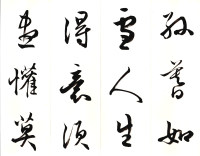 絲暮如
雪人生
得意須
盡懽莫